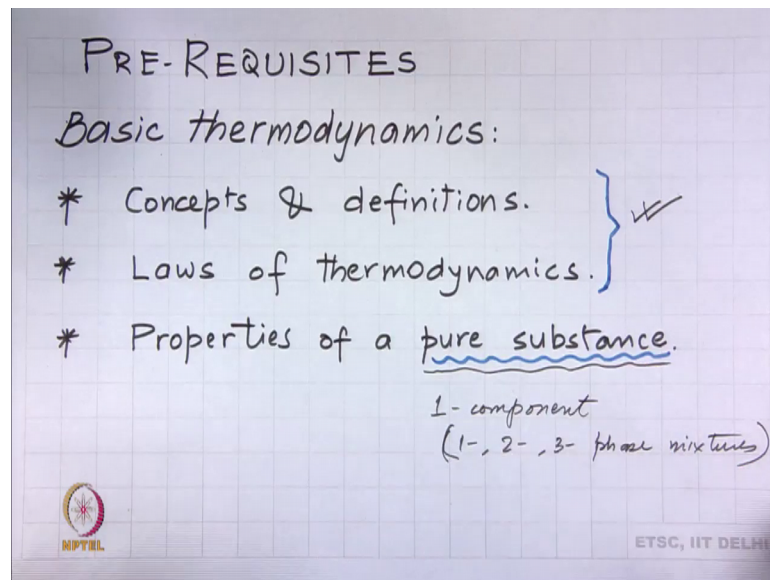 PRE-REQUISITES
Basic thermodynamics:
* Concepts & definitions.
* Laws of thermodynamics.
* Properties of a pure substance.
1-component
(1-, 2-, 3- phase mixtures)
NPTEL
ETSC, IIT DELHI